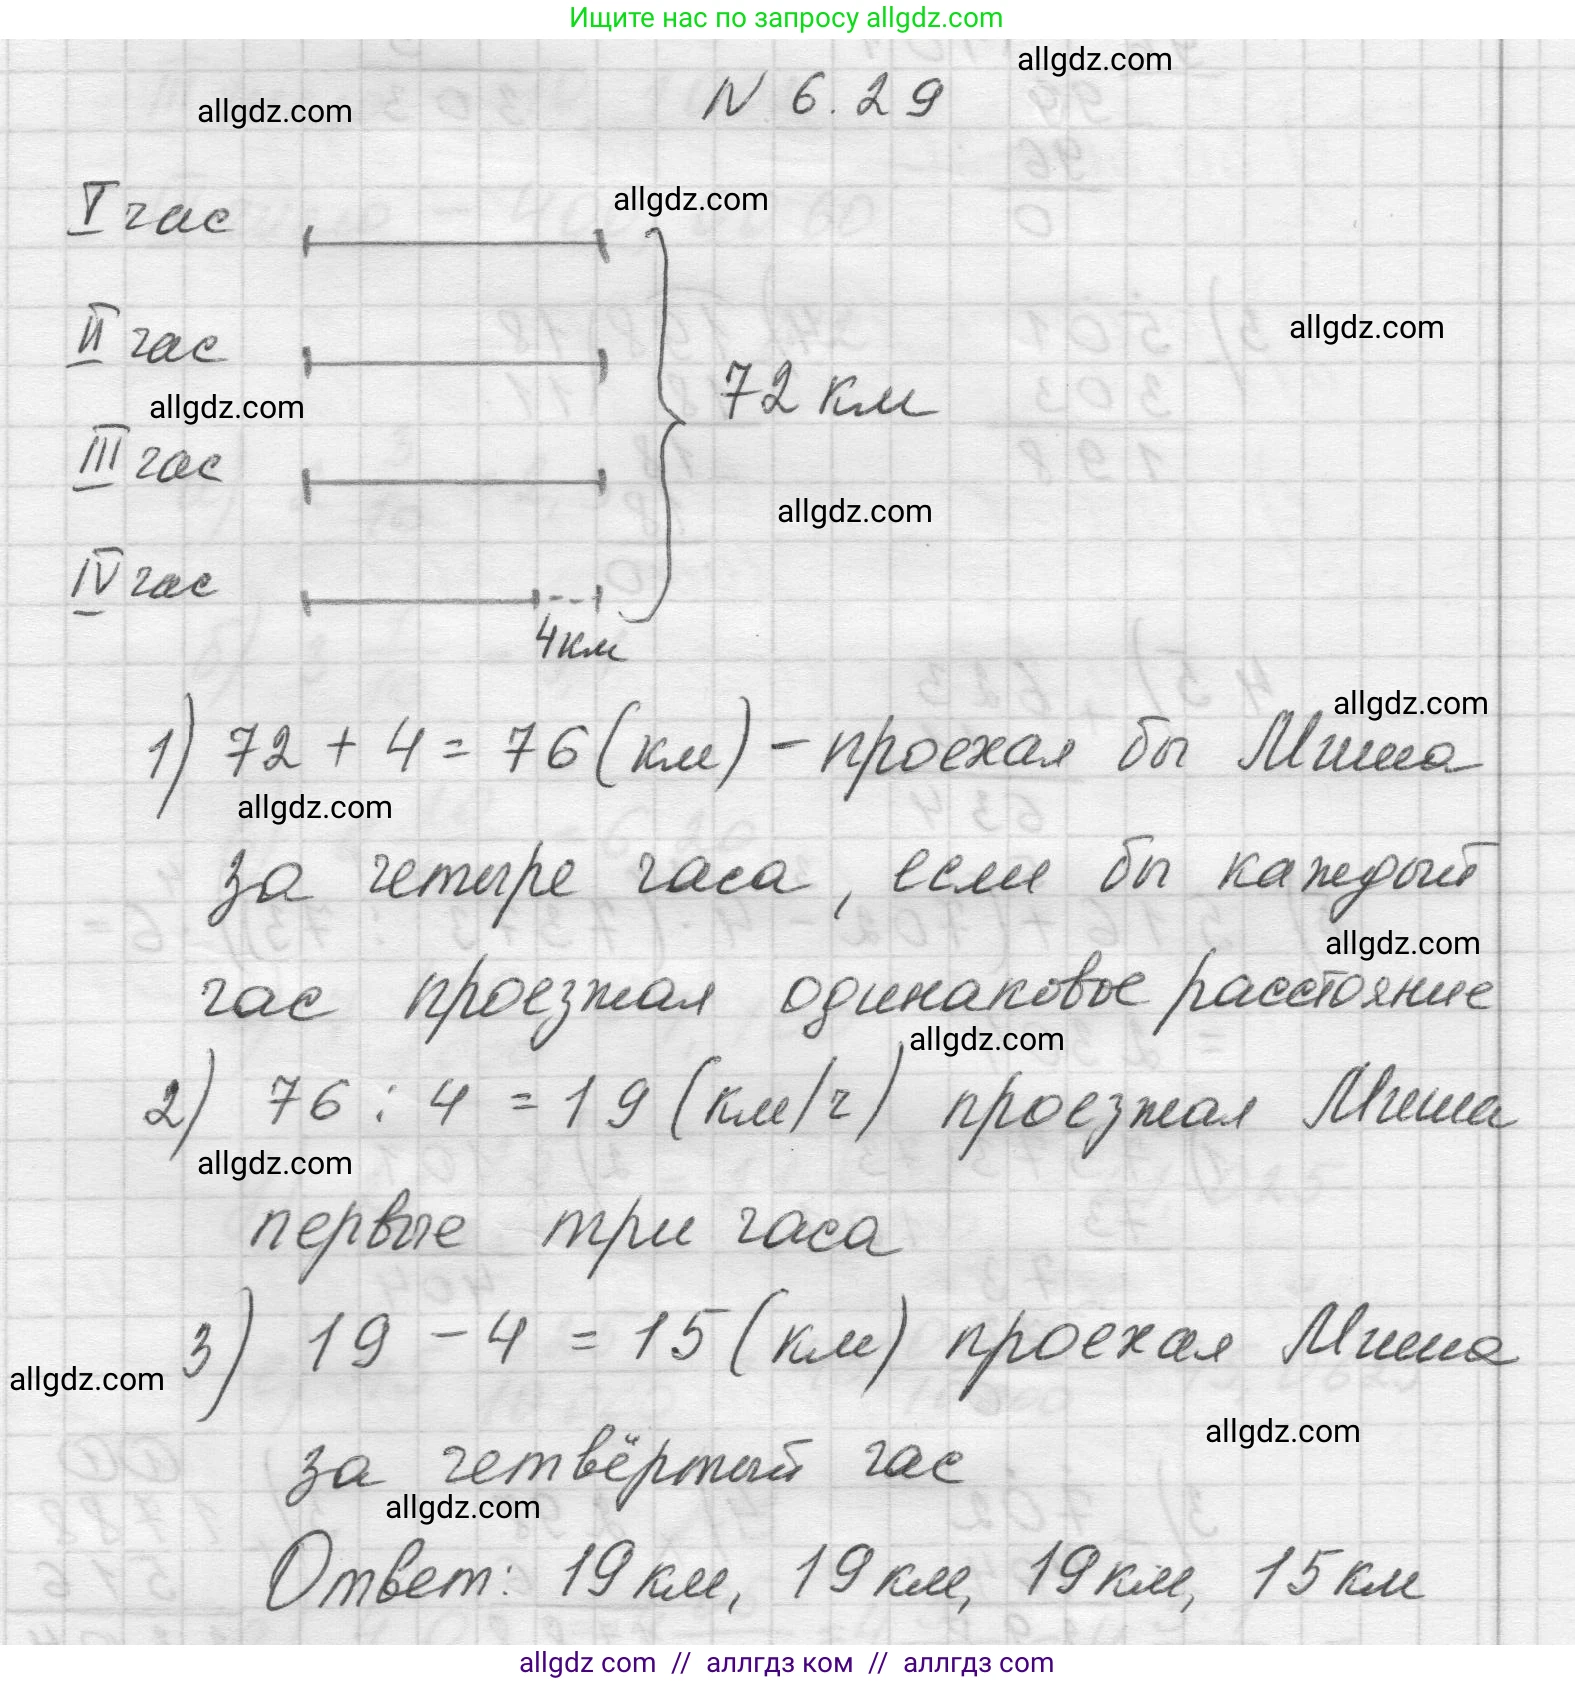 Ищите нас по запросу allgdz.com
allgdz.com
allgdz.com
N 6.29
I час
allgdz.com
II час
allgdz.com
allgdz.com
72 км
III час
allgdz.com
IV час
4км
allgdz.com
1) 72 + 4 = 76 (км) - проехал бы Миша
allgdz.com
за четыре часа, если бы каждый
allgdz.com
час проезжал одинаковое расстояние
allgdz.com
2) 76 : 4 = 19 (км/ч) проезжал Миша
allgdz.com
первые три часа
3) 19 - 4 = 15 (км) проехал Миша
allgdz.com
allgdz.com
за четвёртый час
allgdz.com
Ответ: 19 км, 19 км, 19 км, 15 км
allgdz com // аллгдз ком // аллгдз com